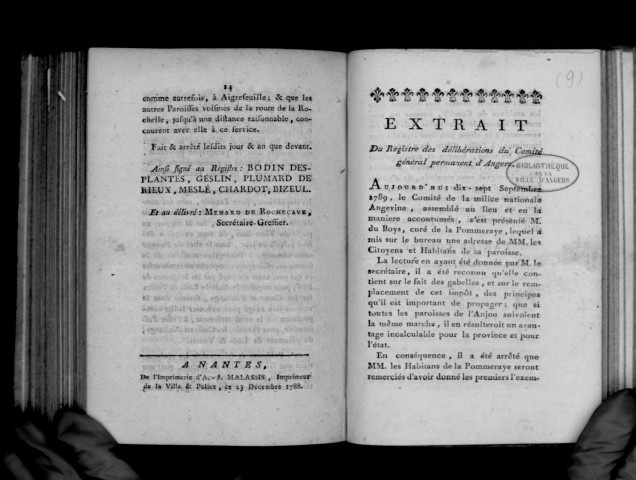 14
comme autrefois, à Aigrefeuille; & que les
autres Paroisses voisines de la route de la Ro-
chelle, jusqu'à une distance raisonnable, con-
courent avec elle à ce service.
Fait & arrêté lesdits jour & an que devant.
Ainsi signé au Registre: BODIN DES-
PLANTES, GESLIN, PLUMARD DE
RIEUX, MESLÉ, CHARDOT, BIZEUL.
Et au délivré: MENARD DE ROCHECAVE,
Secrétaire-Greffier.
A NANTES,
De l'Imprimerie d'A.-J. MALASSIS, Imprimeur
de la Ville & Police, ce 23 Décembre 1788.
(9)
EXTRAIT
Du Registre des délibérations du Comité
général permanent d'Angers.
BIBLIOTHÈQUE
DE LA
VILLE D'ANGERS
AUJOURD'HUI dix-sept Septembre
1789, le Comité de la milice nationale
Angevine, assemblé au lieu et en la
maniere accoutumés, s'est présenté M.
du Boys, curé de la Pommeraye, lequel a
mis sur le bureau une adresse de MM. les
Citoyens et Habitans de sa paroisse.
La lecture en ayant été donnée par M. le
secrétaire, il a été reconnu qu'elle con-
tient sur le fait des gabelles, et sur le rem-
placement de cet impôt, des principes
qu'il est important de propager; que si
toutes les paroisses de l'Anjou suivoient
la même marche, il en résulteroit un avan-
tage incalculable pour la province et pour
l'état.
En conséquence, il a été arrêté que
MM. les Habitans de la Pommeraye seront
remerciés d'avoir donné les premiers l'exem-